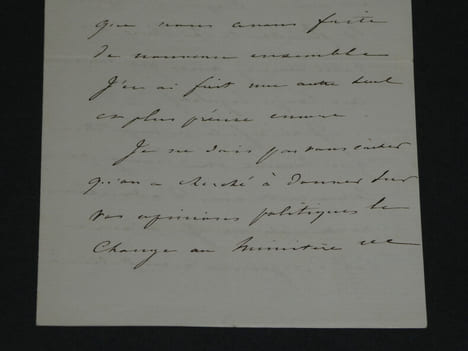 que nous avons faite
de nouveau ensemble
J'en ai fait une autre seul
en plus encore
Je ne dois pas vous cacher
qu'on a cherché à donner sur
vos opinions politiques le
change au Ministère